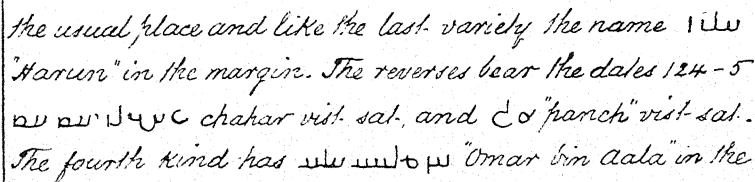 the usual place and like the last variety the name
"Harun" in the margin. The reverses bear the dates 124-5
chahar vist sat, and "panch" vist sat.
The fourth kind has "Omar bin Aala" in the